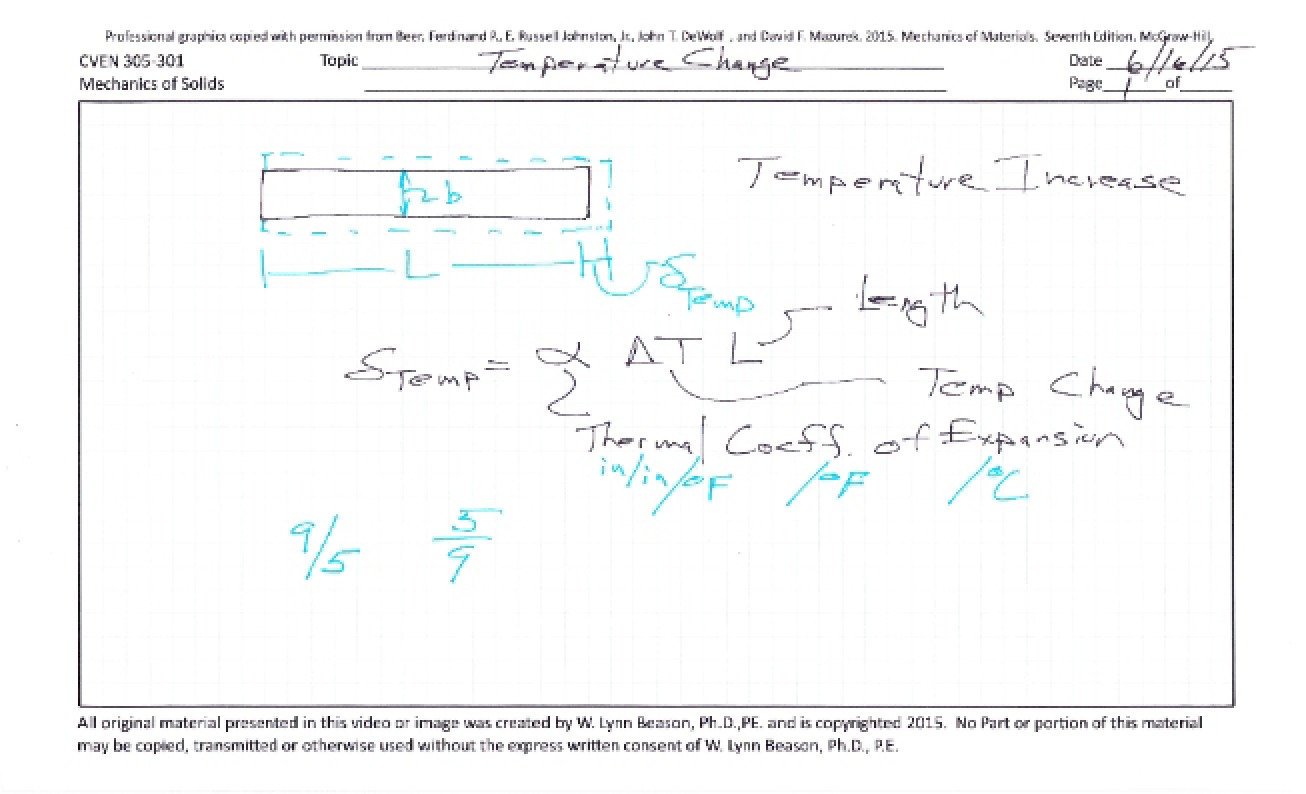 Professional graphics copied with permission from Beer, Ferdinand P., E. Russell Johnston, Jr., John T. DeWolf , and David F. Mazurek. 2015. Mechanics of Materials. Seventh Edition. McGraw-Hill.
CVEN 305-301 Topic Temperature Change Date 6/16/15
Mechanics of Solids Page 1 of
Temperature Increase
b
L
δTemp
Length
δTemp = α ΔT L
Temp Change
Thermal Coeff. of Expansion
in/in/°F /°F /°C
9/5 5/9
All original material presented in this video or image was created by W. Lynn Beason, Ph.D.,PE. and is copyrighted 2015. No Part or portion of this material
may be copied, transmitted or otherwise used without the express written consent of W. Lynn Beason, Ph.D., P.E.